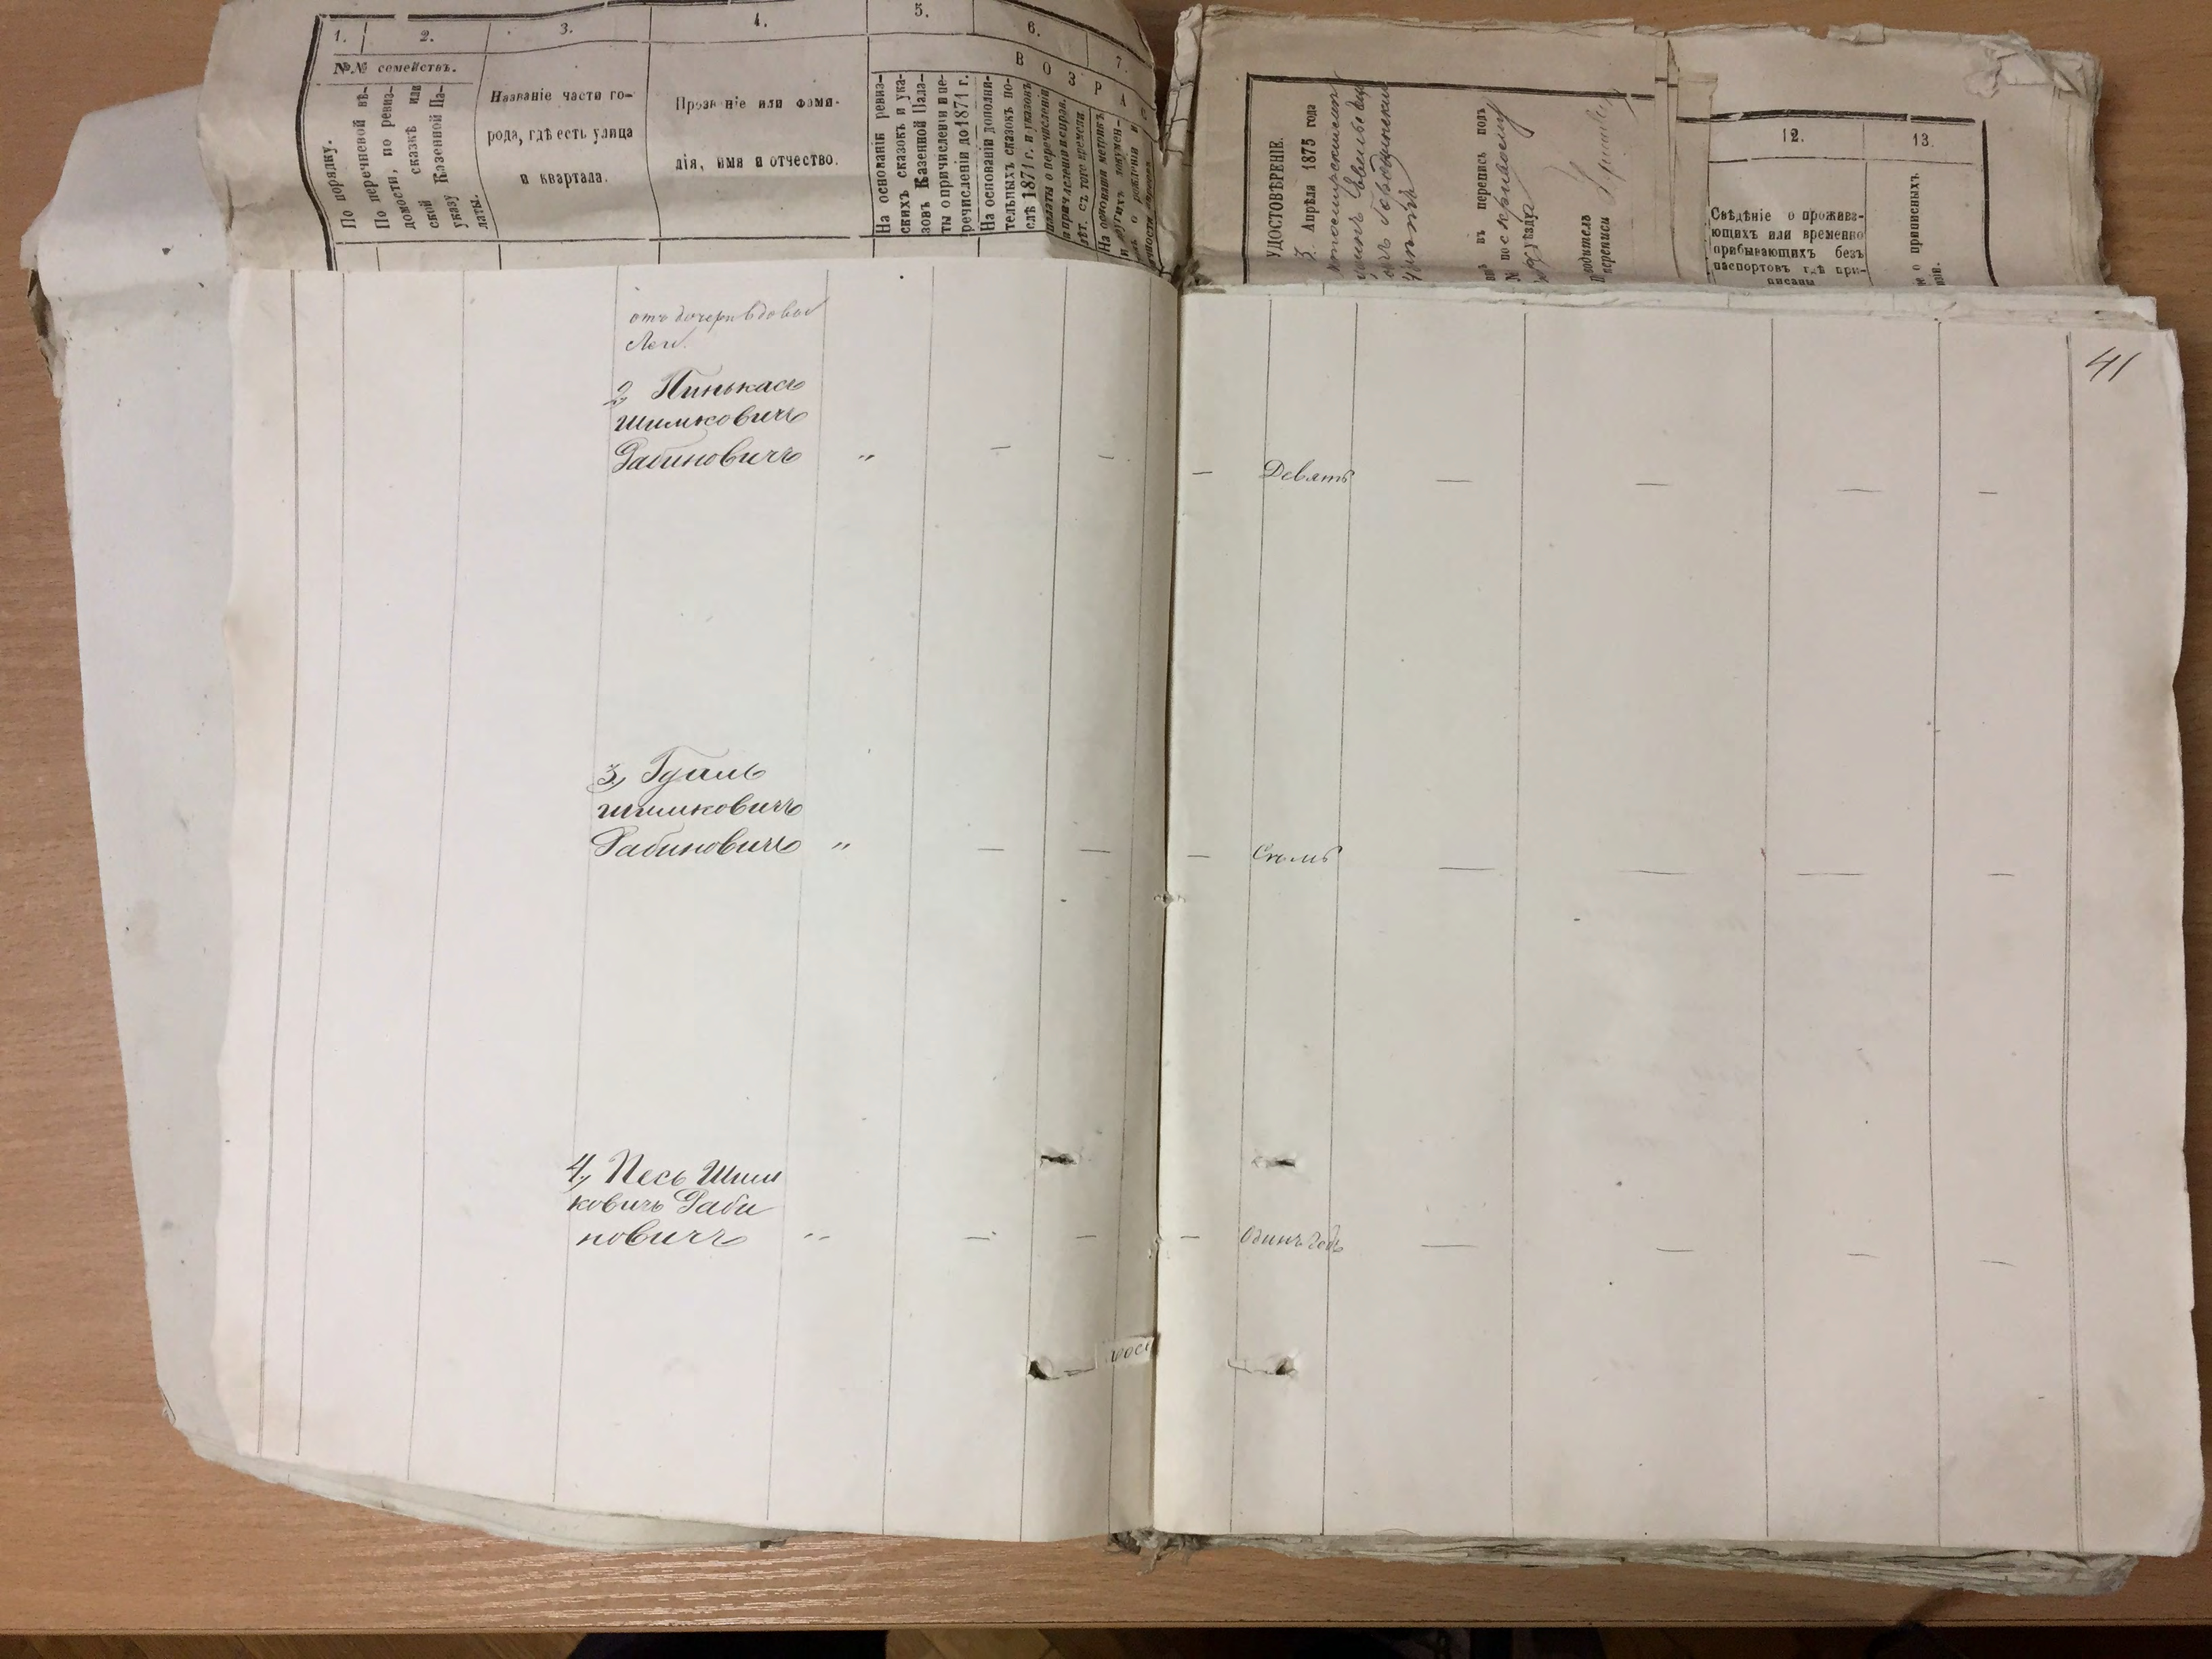 1.
2.
3.
4.
5.
6.
7.
№№ семействъ.
По порядку.
По перечневой вѣ-
домости, по ревиз-
ской сказкѣ или
указу Казенной Па-
латы.
Названіе части го-
рода, гдѣ есть улица
и квартала.
Прозваніе или фами-
лія, имя и отчество.
В О З Р А С
На основаніи ревиз-
скихъ сказокъ и ука-
зовъ Казенной Пала-
ты о причисленіи и пе-
речисленіи до 1871 г.
На основаніи дополни-
тельныхъ сказокъ по-
слѣ 1871 г. и указовъ
палаты о перечисленіи
лѣт. съ того времени.
На основаніи метрикъ
и другихъ докумен-
о рожденіи и
УДОСТОВѢРЕНІЕ.
3 Апрѣля 1875 года
въ перепись подъ
№
уѣзда
переписи
12.
13.
Свѣдѣніе о прожива-
ющихъ или временно
прибывающихъ безъ
паспортовъ гдѣ при-
писаны
о приписныхъ
41
отъ дочери вдовы
2, Пинькасъ
Шимковичъ
Рабиновичъ " — — — Девять — — — —
3, Гдаль
Шимковичъ
Рабиновичъ " — — — Семь — — — —
4, Песь Шим
ковичъ Раби
новичъ " — — — Одинъ годъ — — — —